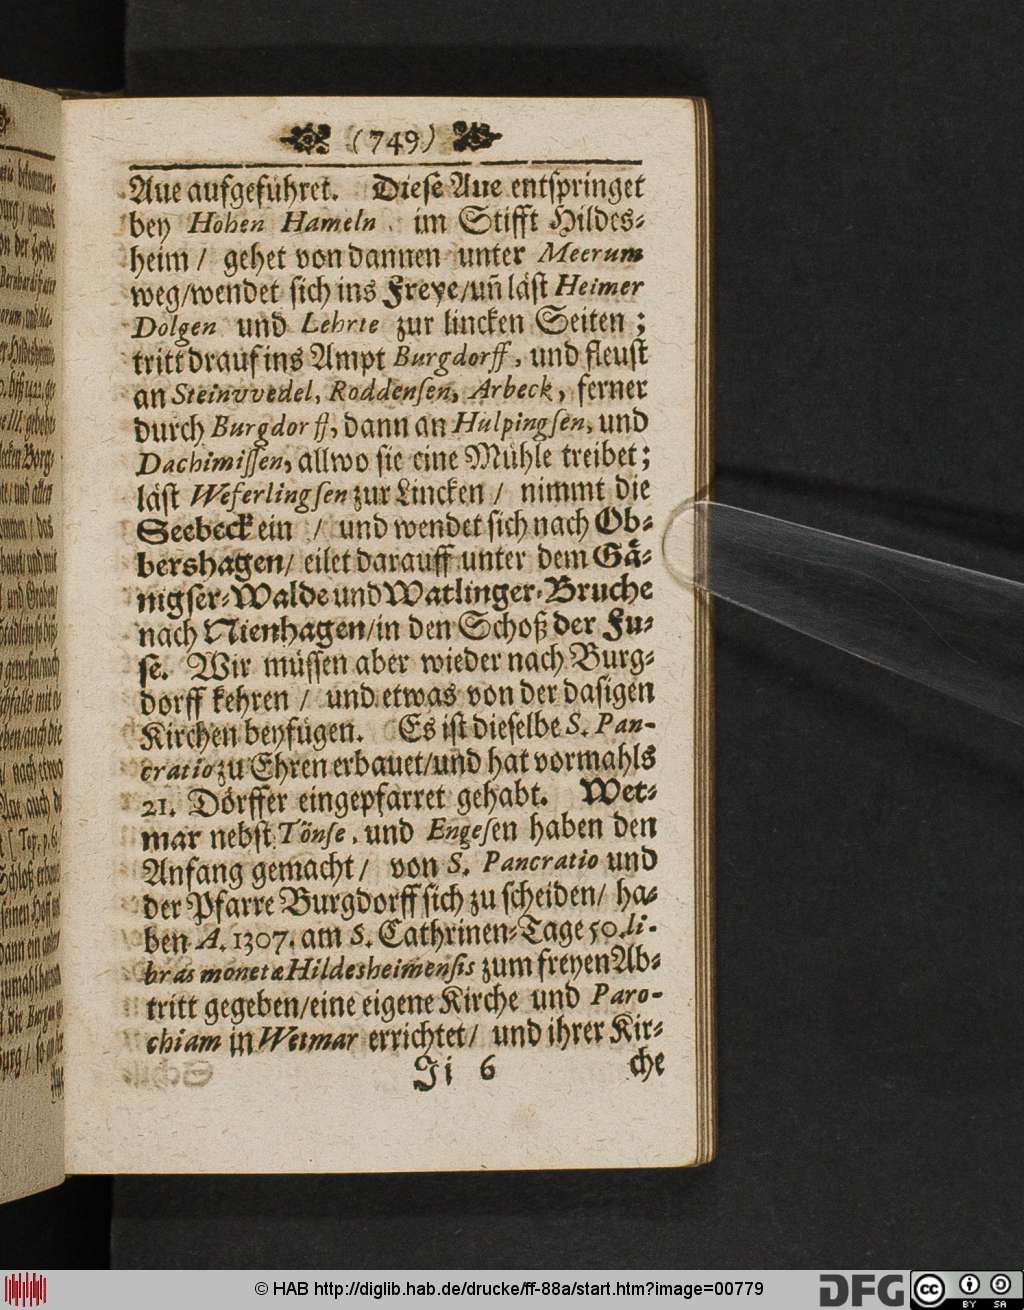 (749)
Aue aufgeführet. Diese Aue entspringet
bey Hohen Hameln, im Stifft Hildes-
heim / gehet von dannen unter Meerum
weg/wendet sich ins Freye/uñ läst Heimer
Dolgen und Lehrte zur lincken Seiten;
tritt drauf ins Ampt Burgdorff, und fleust
an Steinvvedel, Roddensen, Arbeck, ferner
durch Burgdorff, dann an Hulpingsen, und
Dachimissen, allwo sie eine Mühle treibet;
läst Weferlingsen zur Lincken / nimmt die
Seebeck ein / und wendet sich nach Ob-
bershagen/ eilet darauff unter dem Gä-
nigser-Walde und Watlinger-Bruche
nach Nienhagen/in den Schoß der Fu-
se. Wir müssen aber wieder nach Burg-
dorff kehren / und etwas von der dasigen
Kirchen beyfügen. Es ist dieselbe S. Pan-
cratio zu Ehren erbauet/und hat vormahls
21. Dörffer eingepfarret gehabt. Wet-
mar nebst Tönse, und Engesen haben den
Anfang gemacht/ von S. Pancratio und
der Pfarre Burgdorff sich zu scheiden/ ha-
ben A. 1307. am S. Cathrinen-Tage 50. li-
bras monetæ Hildesheimensis zum freyen Ab-
tritt gegeben/eine eigene Kirche und Paro-
chiam in Wetmar errichtet/ und ihrer Kir-
Ji 6 che
© HAB http://diglib.hab.de/drucke/ff-88a/start.htm?image=00779
DFG
cc BY SA